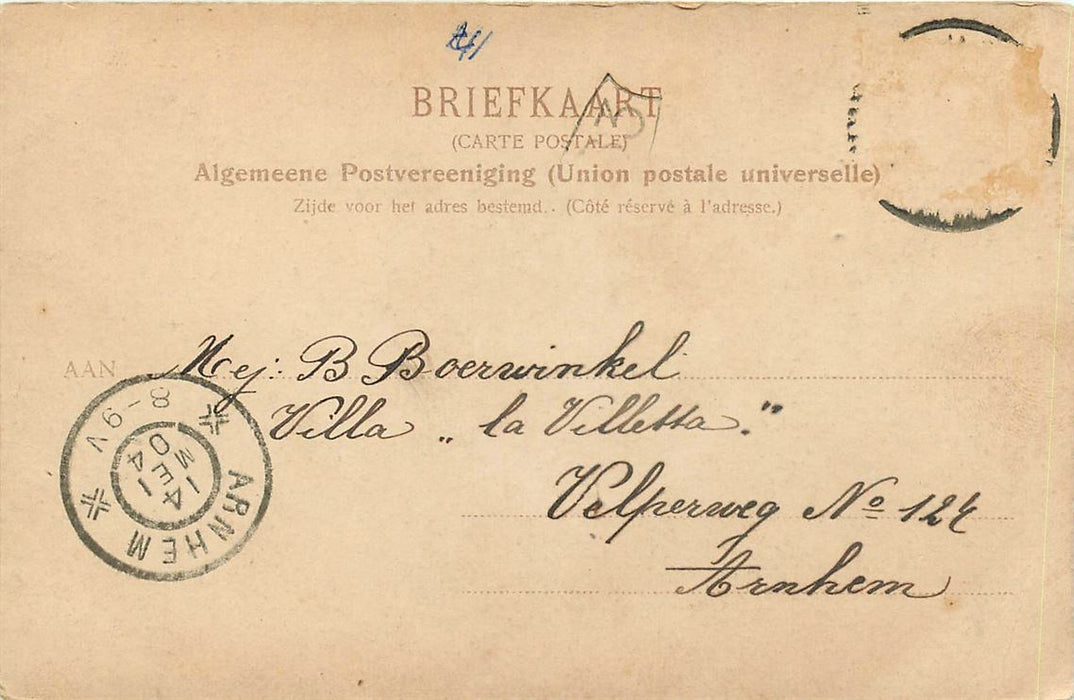 BRIEFKAART
(CARTE POSTALE)
Algemeene Postvereeniging (Union postale universelle)
Zijde voor het adres bestemd. - (Côté réservé à l'adresse.)
AAN Mej: B Boerwinkel
Villa „ la Villetta."
Velperweg No 124
Arnhem
ARNHEM
8-9V
14 ME 04